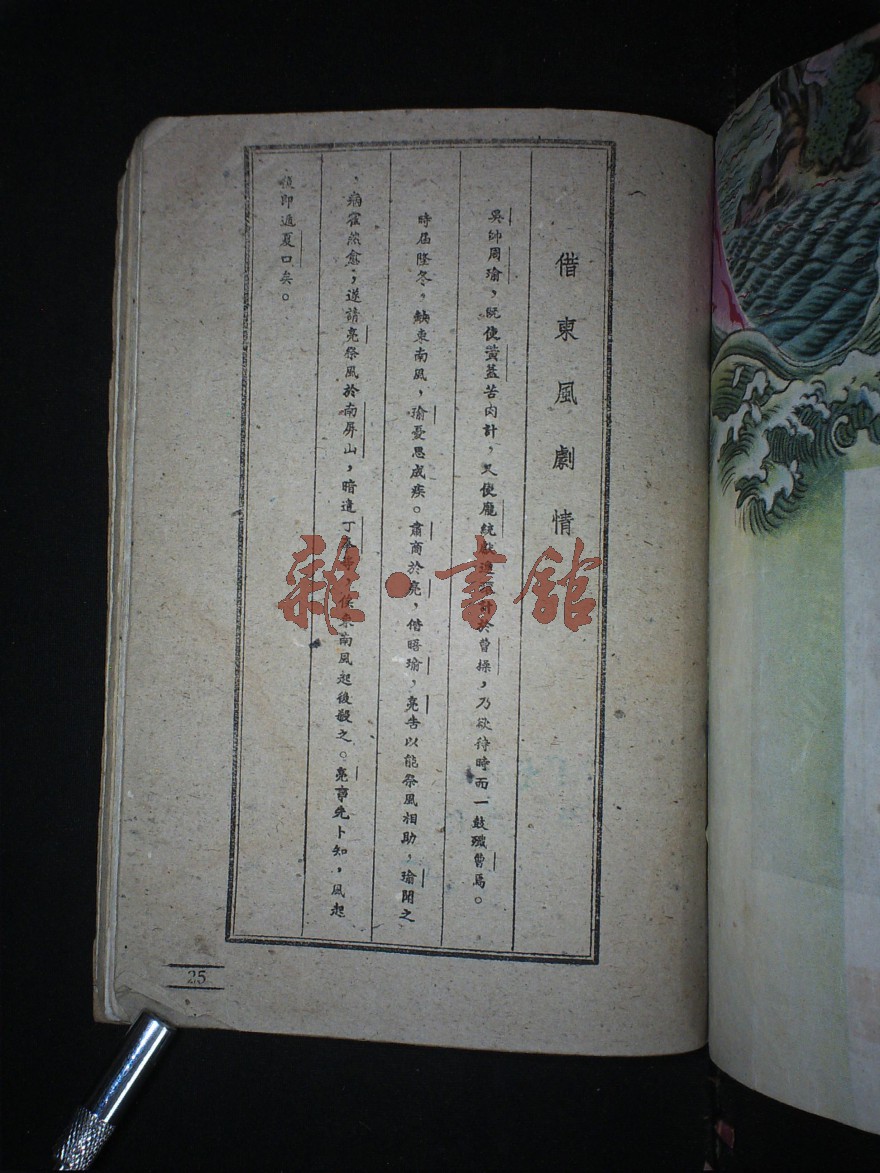 借東風劇情
吳帥周瑜,既使黃蓋苦肉計,又使龐統獻連環計於曹操,乃欲待時而一鼓殲曹焉。
時屆隆冬,缺東南風,瑜憂思成疾。肅商於亮,偕晤瑜,亮告以能祭風相助,瑜聞之
,病霍然愈;遂請亮祭風於南屏山,暗遣丁 ,俟東南風起後殺之。亮事先卜知,風起
後即遁夏口矣。
雜·書館
25